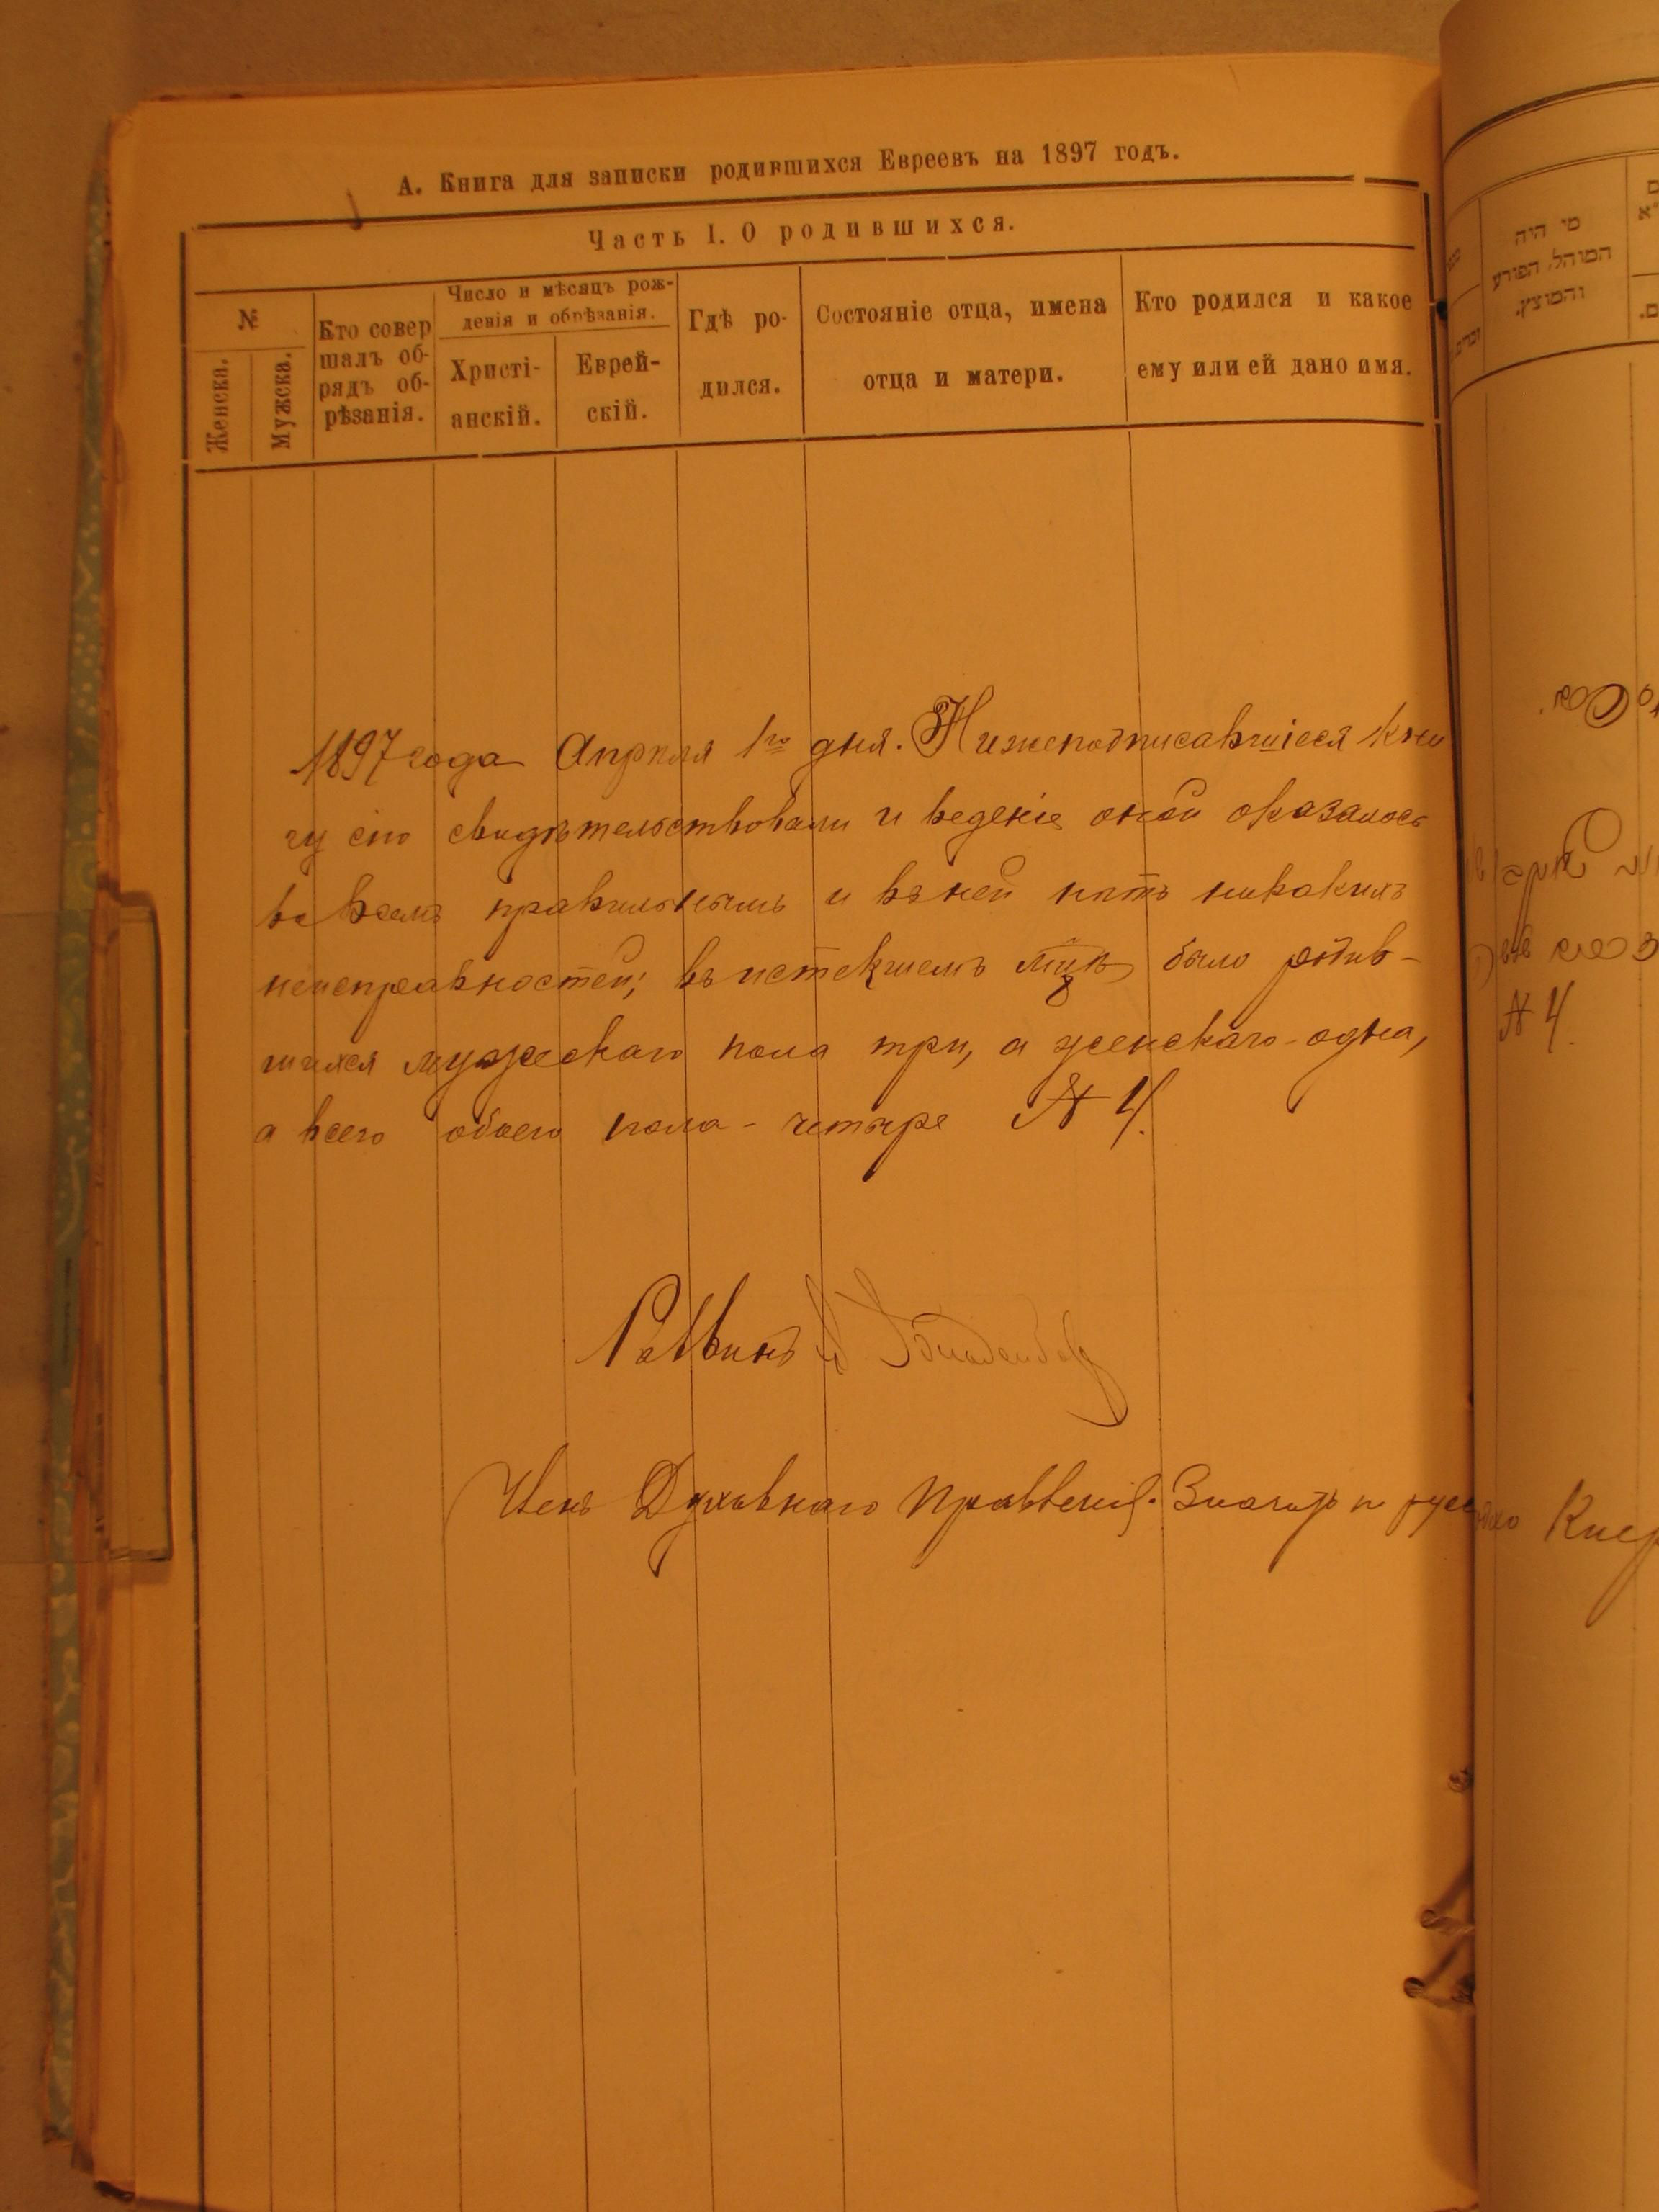 А. Книга для записки родившихся Евреевъ на 1897 годъ.
Часть I. О родившихся.
№
Женска.
Мужска.
Кто совер
шалъ об-
рядъ об-
рѣзанія.
Число и мѣсяцъ рож-
денія и обрѣзанія.
Христі-
анскій.
Еврей-
скій.
Гдѣ ро-
дился.
Состояніе отца, имена
отца и матери.
Кто родился и какое
ему или ей дано имя.
1897 года Апрѣля 1го дня. Нижеподписавшіеся кни
гу сію свидѣтельствовали и веденіе оной оказалось
во всемъ правильнымъ и въ ней нѣтъ никакихъ
неисправностей; въ истекшемъ мцѣ было родив-
шихся мужескаго пола три, а женскаго - одна,
а всего обоего пола - четыре № 4.
Раввинъ
Членъ Духовнаго Правленія.
מי היה
המוהל, הפורע
והמוצץ.
№ 4.